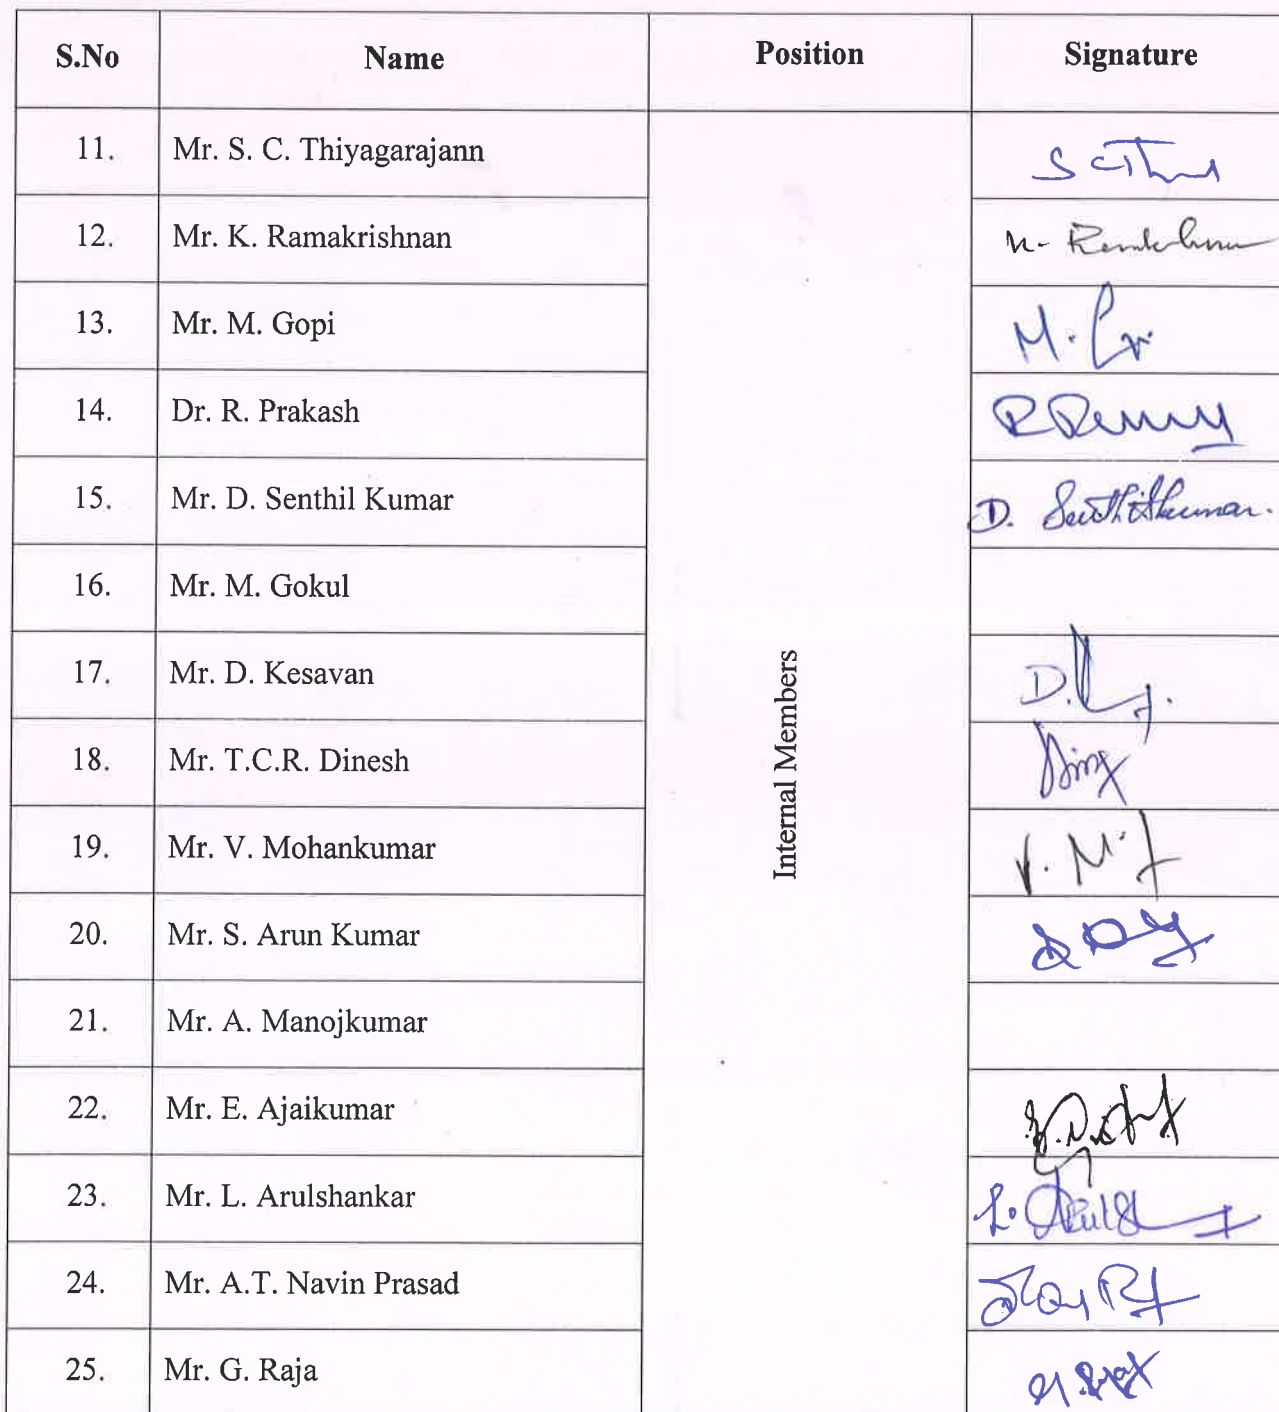 S.No Name Position Signature
11. Mr. S. C. Thiyagarajann
12. Mr. K. Ramakrishnan
13. Mr. M. Gopi
14. Dr. R. Prakash
15. Mr. D. Senthil Kumar D. Senthilkumar.
16. Mr. M. Gokul
17. Mr. D. Kesavan
18. Mr. T.C.R. Dinesh
19. Mr. V. Mohankumar
20. Mr. S. Arun Kumar
21. Mr. A. Manojkumar
22. Mr. E. Ajaikumar
23. Mr. L. Arulshankar
24. Mr. A.T. Navin Prasad
25. Mr. G. Raja
Internal Members